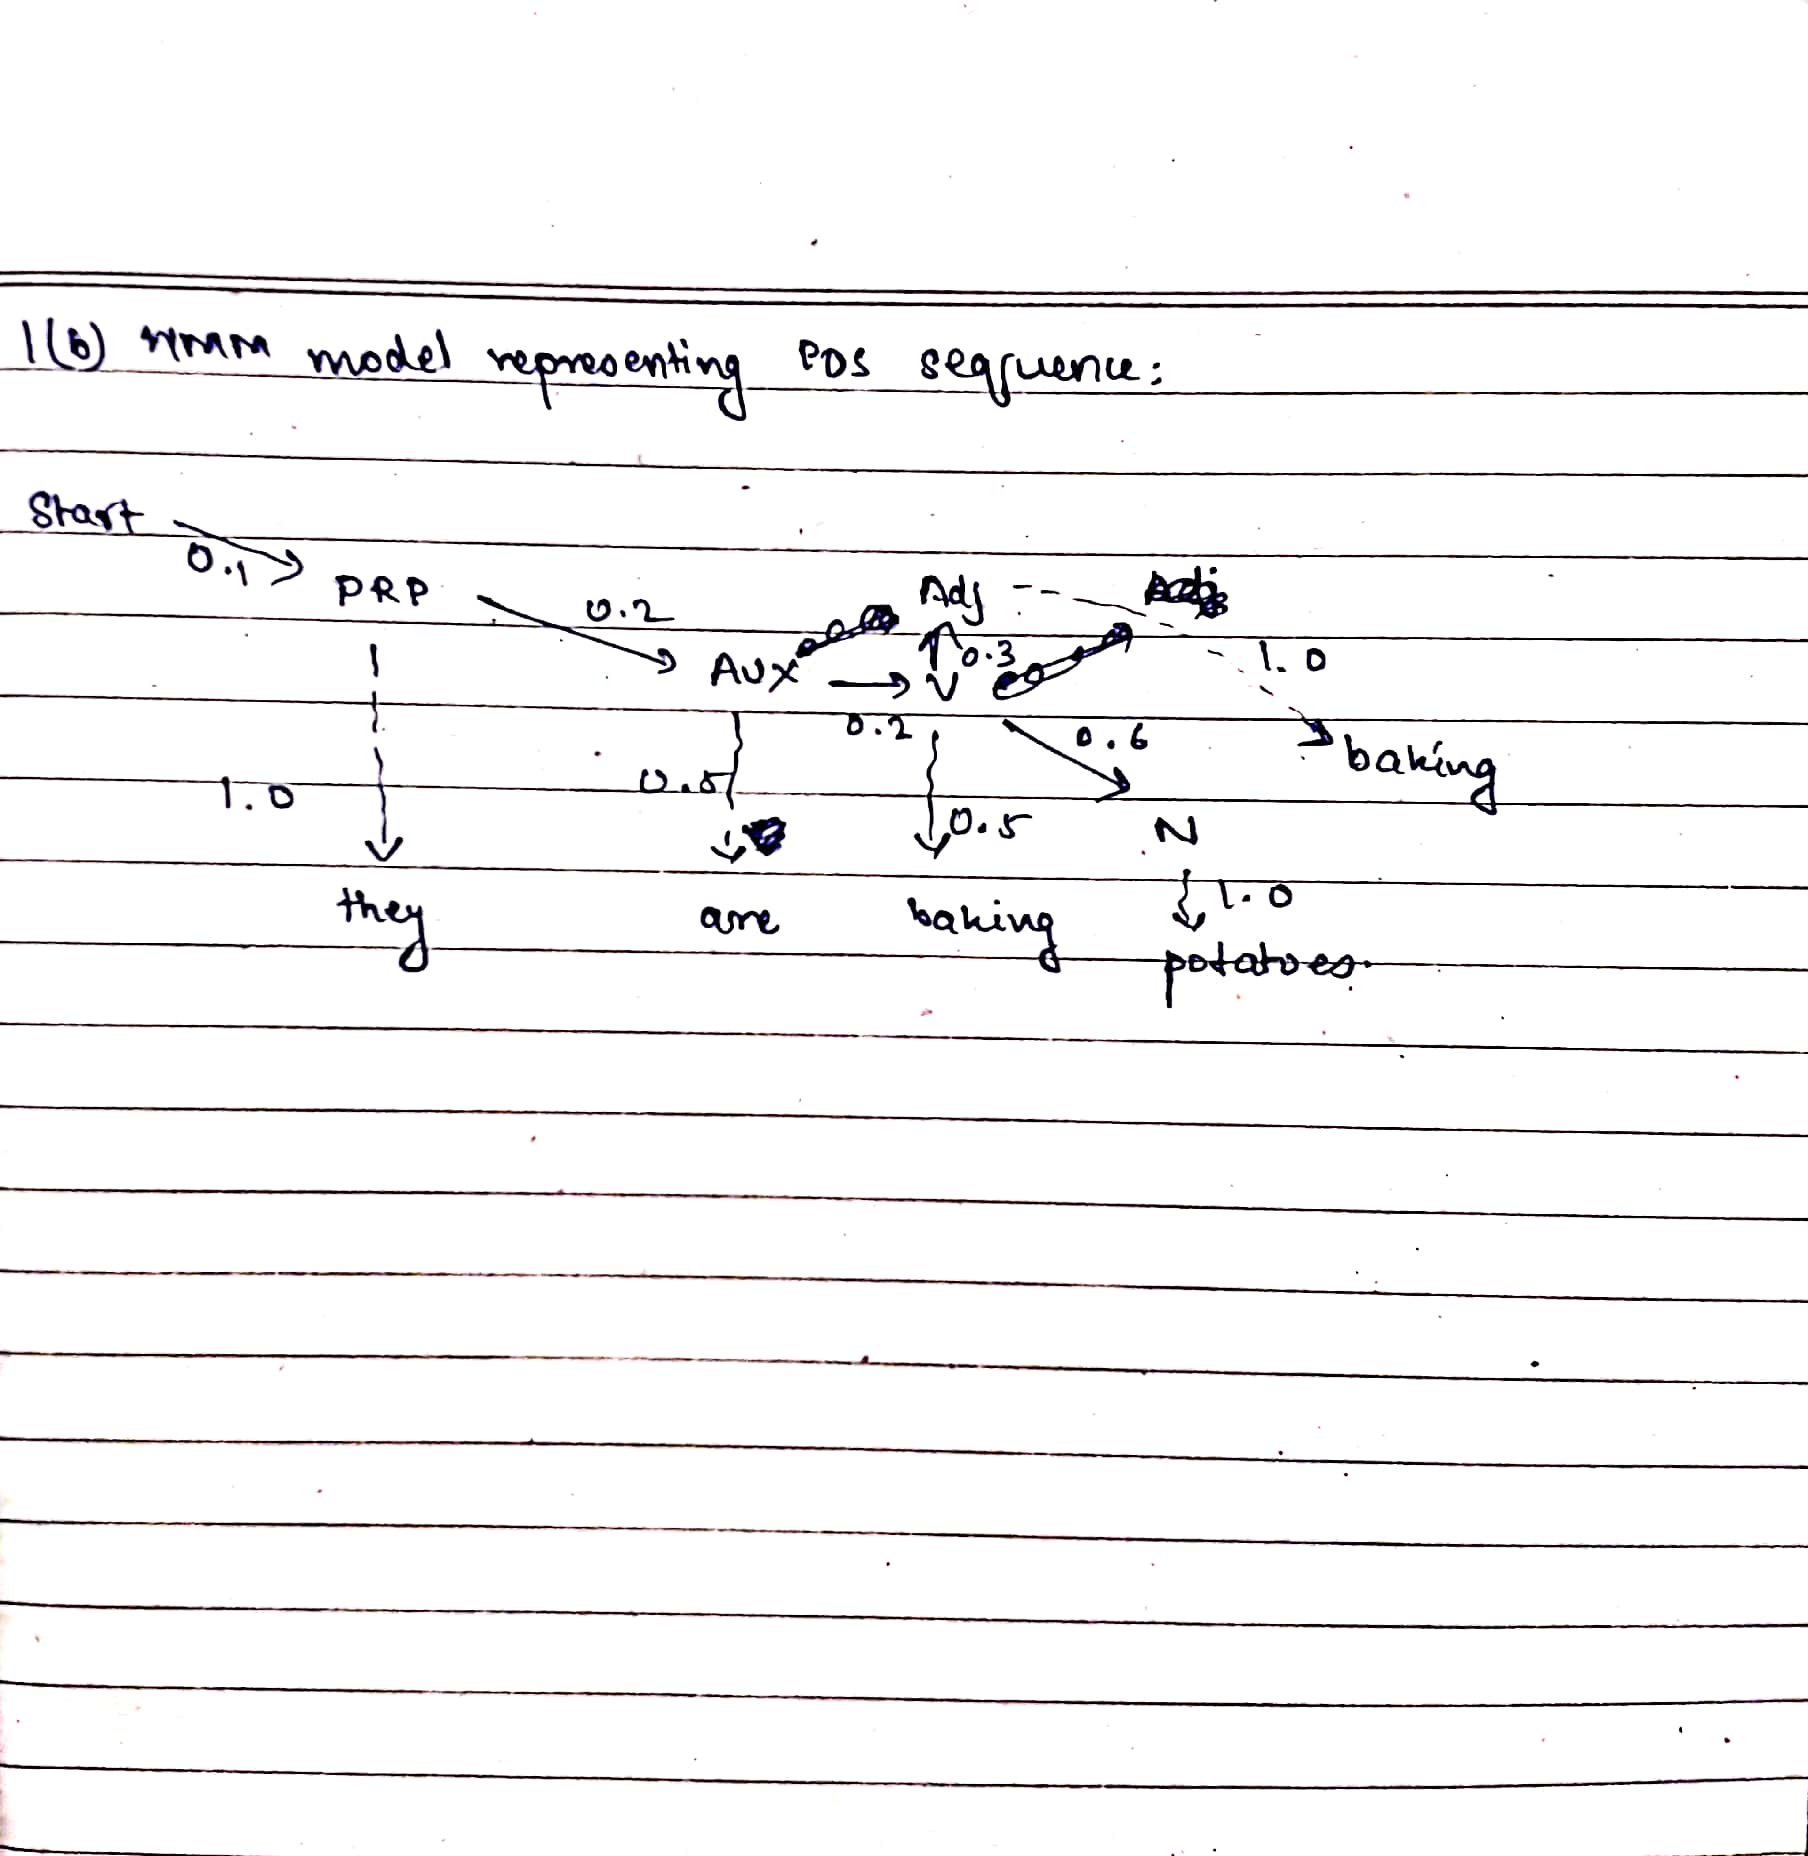 1(b) HMM model representing POS seqruence:
Start
0.1
PRP 0.2 Adj
AUX V 0.3 1.0
0.2 0.6 baking
1.0 0.5 0.5 N
they are baking 1.0
potatoes.